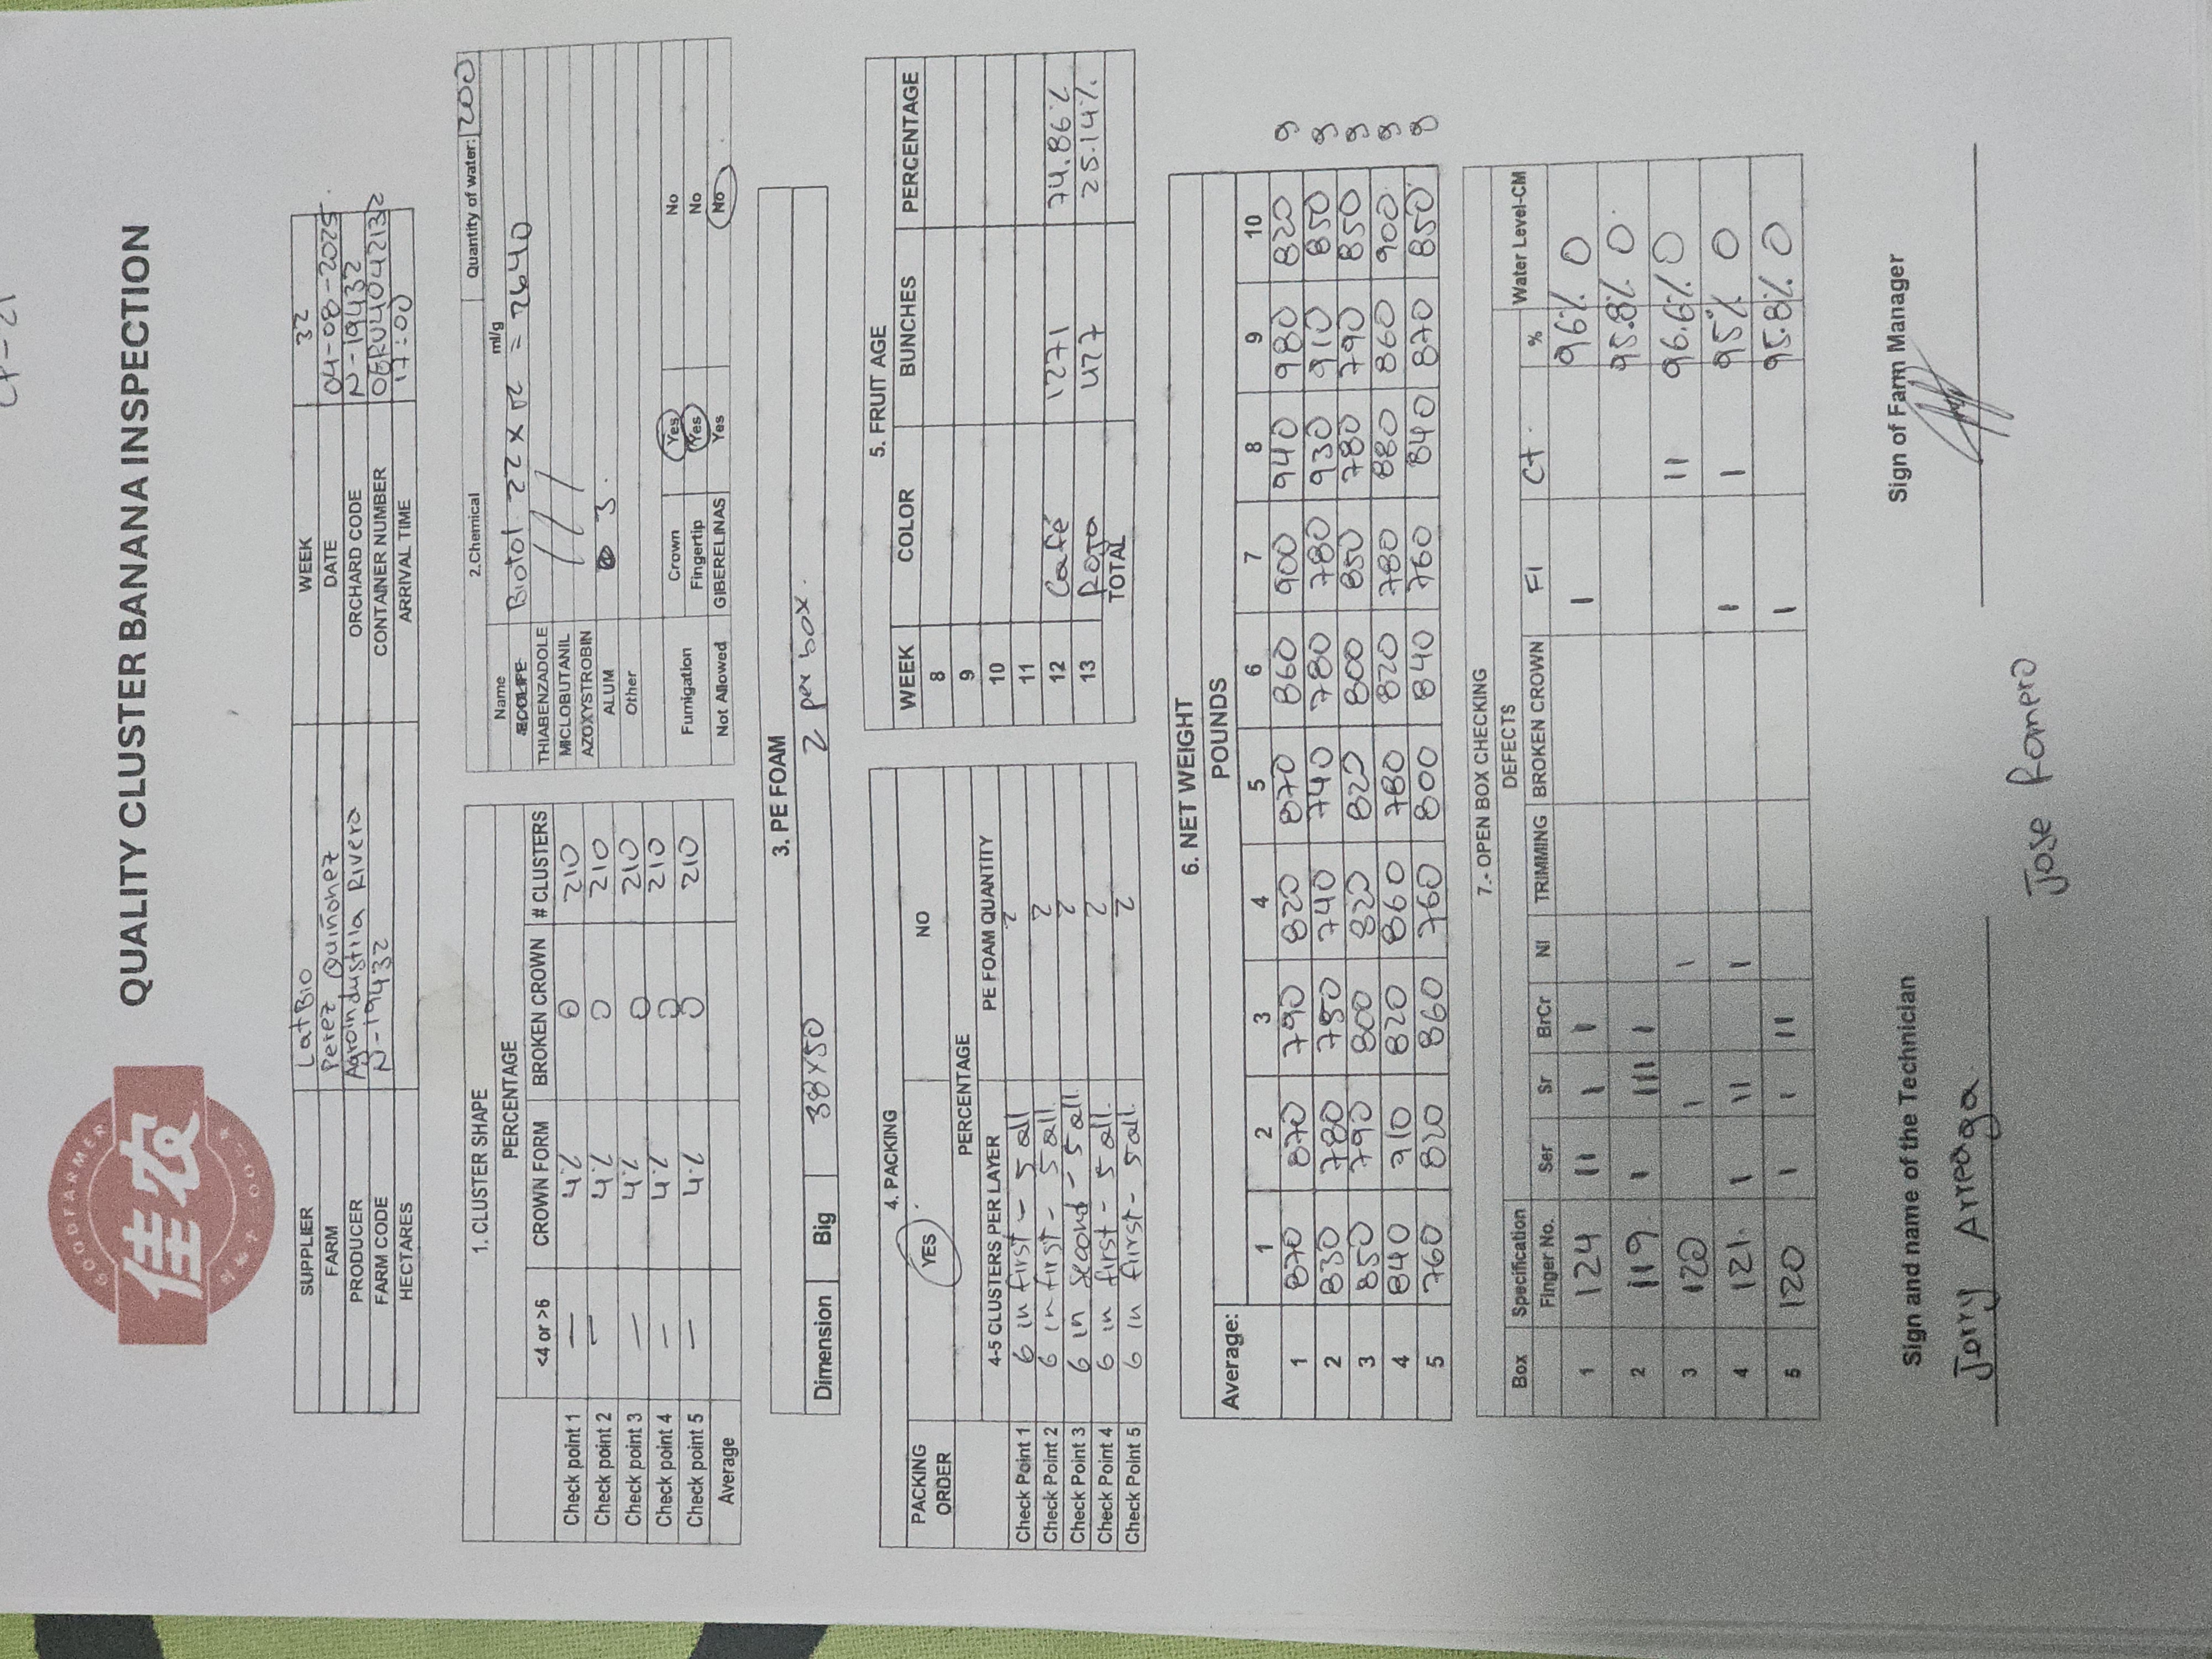 CP-21
GOODFARMER
佳农
创始于二〇〇二年
QUALITY CLUSTER BANANA INSPECTION
SUPPLIER LatBio WEEK 32
FARM Perez Quiñonez DATE 04-08-2025
PRODUCER Agroindustila Rivera ORCHARD CODE N-19432
FARM CODE N-19432 CONTAINER NUMBER OERU4042132
HECTARES ARRIVAL TIME 17:00
1. CLUSTER SHAPE
PERCENTAGE
<4 or >6 CROWN FORM BROKEN CROWN # CLUSTERS
Check point 1 — 4% 0 210
Check point 2 — 4% 0 210
Check point 3 — 4% 0 210
Check point 4 — 4% 0 210
Check point 5 — 4% 0 210
Average
2.Chemical Quantity of water: 200
Name ml/g
ECOLIFE Biotol 22 x 12 = 2640
THIABENZADOLE
MICLOBUTANIL
AZOXYSTROBIN
ALUM 3.
Other
Fumigation Crown Yes No
Fingertip Yes No
Not Allowed GIBERELINAS Yes No
3. PE FOAM
Dimension Big 38x50 2 per box.
4. PACKING
PACKING ORDER YES NO
PERCENTAGE
4-5 CLUSTERS PER LAYER PE FOAM QUANTITY
Check Point 1 6 in first - 5 all 2
Check Point 2 6 in first - 5 all. 2
Check Point 3 6 in second - 5 all. 2
Check Point 4 6 in first - 5 all. 2
Check Point 5 6 in fiirst - 5 all. 2
5. FRUIT AGE
WEEK COLOR BUNCHES PERCENTAGE
8
9
10
11
12 Café 1271 74.86%
13 Roja 427 25.14%
TOTAL
6. NET WEIGHT
Average: POUNDS
1 2 3 4 5 6 7 8 9 10
1 870 870 790 820 870 860 900 940 980 820 g
2 830 780 750 740 740 780 780 930 910 850 g
3 850 790 800 820 820 800 850 780 790 850 g
4 840 910 820 860 780 820 780 880 860 900 g
5 760 820 860 760 800 840 760 840 870 850 g
7.- OPEN BOX CHECKING
Box Specification DEFECTS Water Level-CM
Finger No. Ser Sr BrCr NI TRIMMING BROKEN CROWN FI Ct %
1 124 II I I I 96% 0
2 119 I III I 95.8% 0
3 120 I I II 96.6% 0
4 121 I II I I I 95% 0
5 120 I I II I 95.8% 0
Sign and name of the Technician
Jerry Arreaga
Sign of Farm Manager
Jose Romero